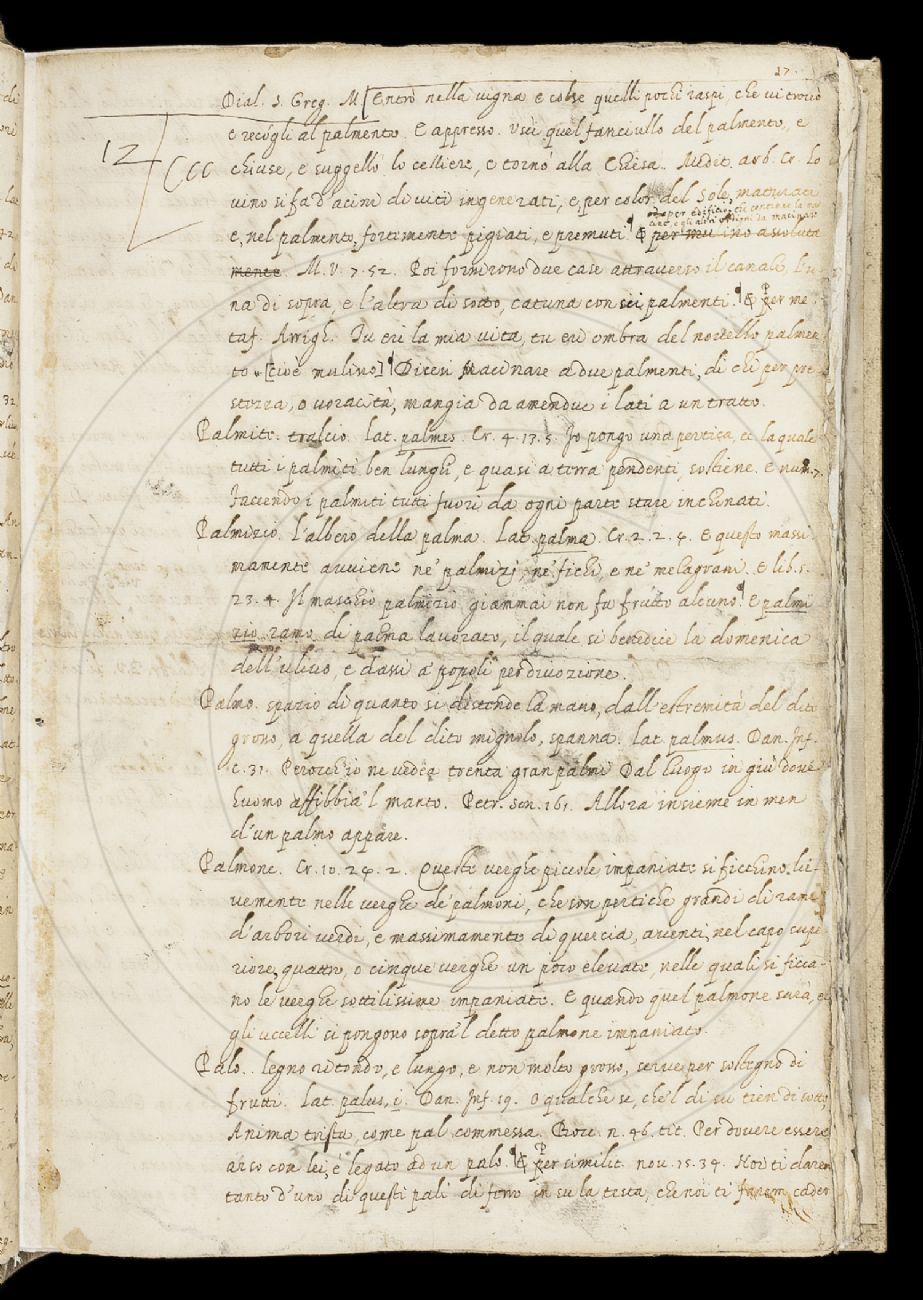 27
Dial. S. Greg. M. Entrò nella vigna e colse quelli pochi raspi, che vi trovò
12 Ccc
e recogli al palmento. E appresso. Uscì quel fanciullo del palmento, e
chiuse, e suggellò lo celliere, e tornò alla Chiesa. Medit. arb. Cr. Lo
vino si fa d'acini di viti ingenerati, e per color del Sole, maturati
ed per edificio, che contiene la ma
cine e gli altri da macinare
e, nel palmento, fortemente pigiati, e premuti. ¶ E per mulino assoluta
mente. M. V. 7. 52. Poi fornirono due case attraverso il canale, l'u-
na di sopra, e l'altra di sotto, catuna con sei palmenti. ¶ E Per me
taf. Arrigh. Tu eri la mia vita, tu eri ombra del novello palmen
to. [cioè mulino] ¶ Dicesi Macinare a due palmenti, di chi per pre
stezza, o voracità, mangia da amendue i lati a un tratto.
Palmite. tralcio. Lat. palmes. Cr. 4. 17. 5. Io pongo una pertica, et la quale
tutti i palmiti ben lunghi, e quasi a terra pendenti, sostiene. E num. 7.
Facciendo i palmiti tutti fuori da ogni parte stare inchinati.
Palmizio. L'albero della palma. Lat. palma. Cr. 2. 2. 4. E questo massi
mamente avviene ne' palmizj, ne' fichi, e ne' melagrani. E lib. 5.
23. 4. Il maschio palmizio giammai non fa frutto alcuno. ¶ E palmi
zio ramo di palma lavorato, il quale si benedice la domenica
dell'ulivo, e dassi a' popoli per divozione.
Palmo. spazio di quanto si distende la mano, dall'estremità del dito
grosso, a quella del dito mignolo, spanna. Lat. palmus. Dan. Inf.
c. 31. Perocch'io ne vedea trenta gran palmi Dal luogo in giù dove
huomo affibbia 'l manto. Petr. son. 161. Allora insieme in men
d'un palmo appare.
Palmone. Cr. 10. 24. 2. Queste verghe piccole impaniate si ficchino lie-
vemente nelle verghe de' palmoni, che son pertiche grandi di rami
d'arbori verdi, e massimamente di quercia, aventi, nel capo supe
riore, quattro, o cinque verghe un poco elevate, nelle quali si ficca-
no le verghe sottilissime impaniate. E quando quel palmone sarà, et
gli uccelli si pongono sopra 'l detto palmone impaniato.
Palo. legno ritondo, e lungo, e non molto grosso, serve per sostegno di
frutti. Lat. palus, i. Dan. Inf. 19. O qual che se, che 'l di su tien di sotto,
Anima trista, come pal commessa. Bocc. n. 46. tit. Per dovere essere
arso con lei, è legato ad un palo. ¶ E Per similit. nov. 15. 34. Noi ti darem
tanto d'uno di questi pali di ferro in su la testa, che noi ti farem cader